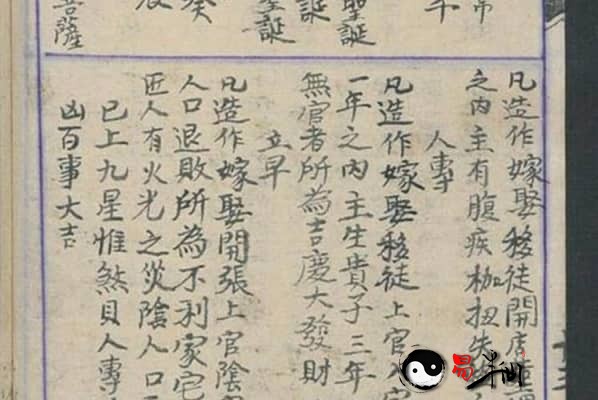 帝
午
聖誕
誕
聖誕
癸
辰
菩薩
凡造作嫁娶移徒開店
之內主有腹疾枷扭失
人專
凡造作嫁娶移徒上官入
一年之內主生貴子三年
無官者所為吉慶大發財
立早
凡造作嫁娶開張上官陰
人口退敗所為不利家宅
匠人有火光之災陰人口
已上九星惟煞貝人專
凶百事大吉
十三
易